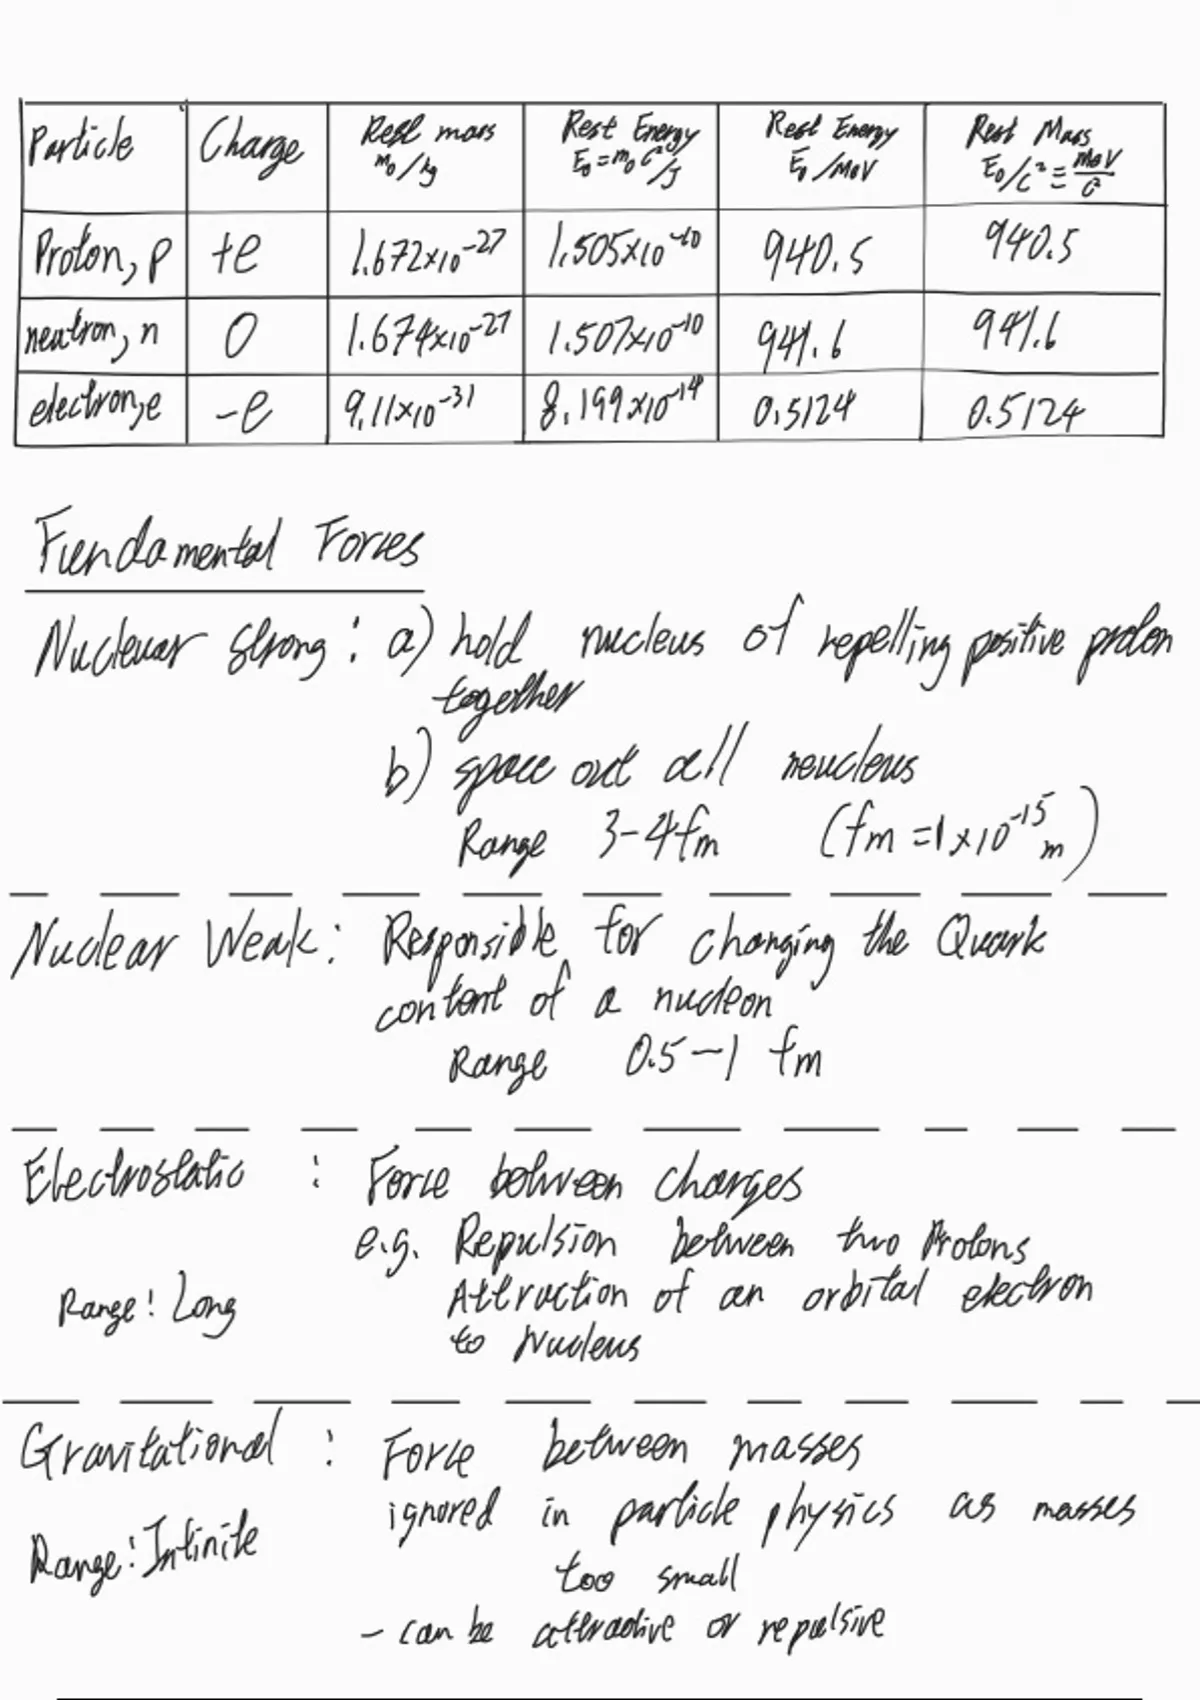 Particle | Charge | Rest mass m₀/kg | Rest Energy E₀=m₀c²/J | Rest Energy E₀/MeV | Rest Mass E₀/c² ≡ MeV/c²
Proton, p | +e | 1.672×10⁻²⁷ | 1.505×10⁻¹⁰ | 940.5 | 940.5
neutron, n | 0 | 1.674×10⁻²⁷ | 1.507×10⁻¹⁰ | 941.6 | 941.6
electron,e | -e | 9.11×10⁻³¹ | 8.199×10⁻¹⁴ | 0.5124 | 0.5124
Fundamental Forces
Nucleuar strong : a) hold nucleus of repelling positive proton
together
b) space out all neucleus
Range 3-4fm (fm =1×10⁻¹⁵ m)
Nuclear Weak : Responsible for changing the Quark
content of a nucleon
Range 0.5-1 fm
Electrostatic : Force between charges
e.g. Repulsion between two Protons
Attraction of an orbital electron
Range : Long
to Nucleus
Gravitational : Force between masses
ignored in particle physics as masses
Range : Infinite
too small
- can be attractive or repulsive